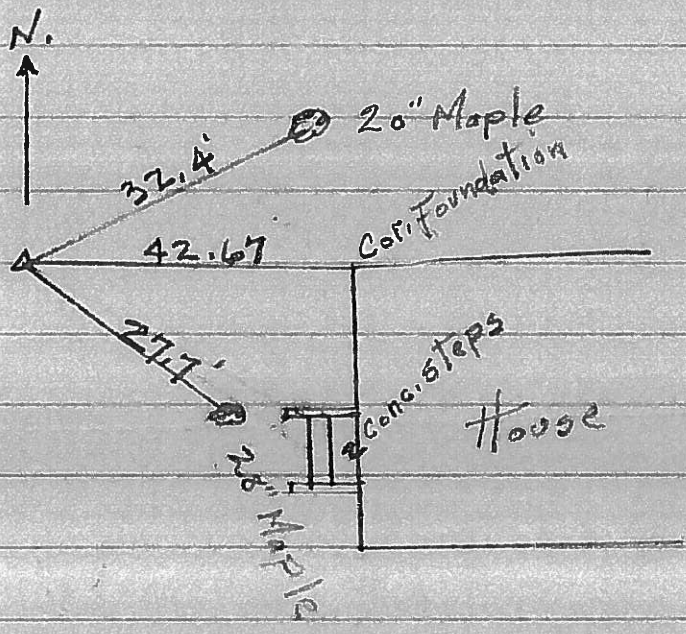 N.
20" Maple
32.4'
Cor. Foundation
42.67
27.7'
Conc. steps
House
" Maple